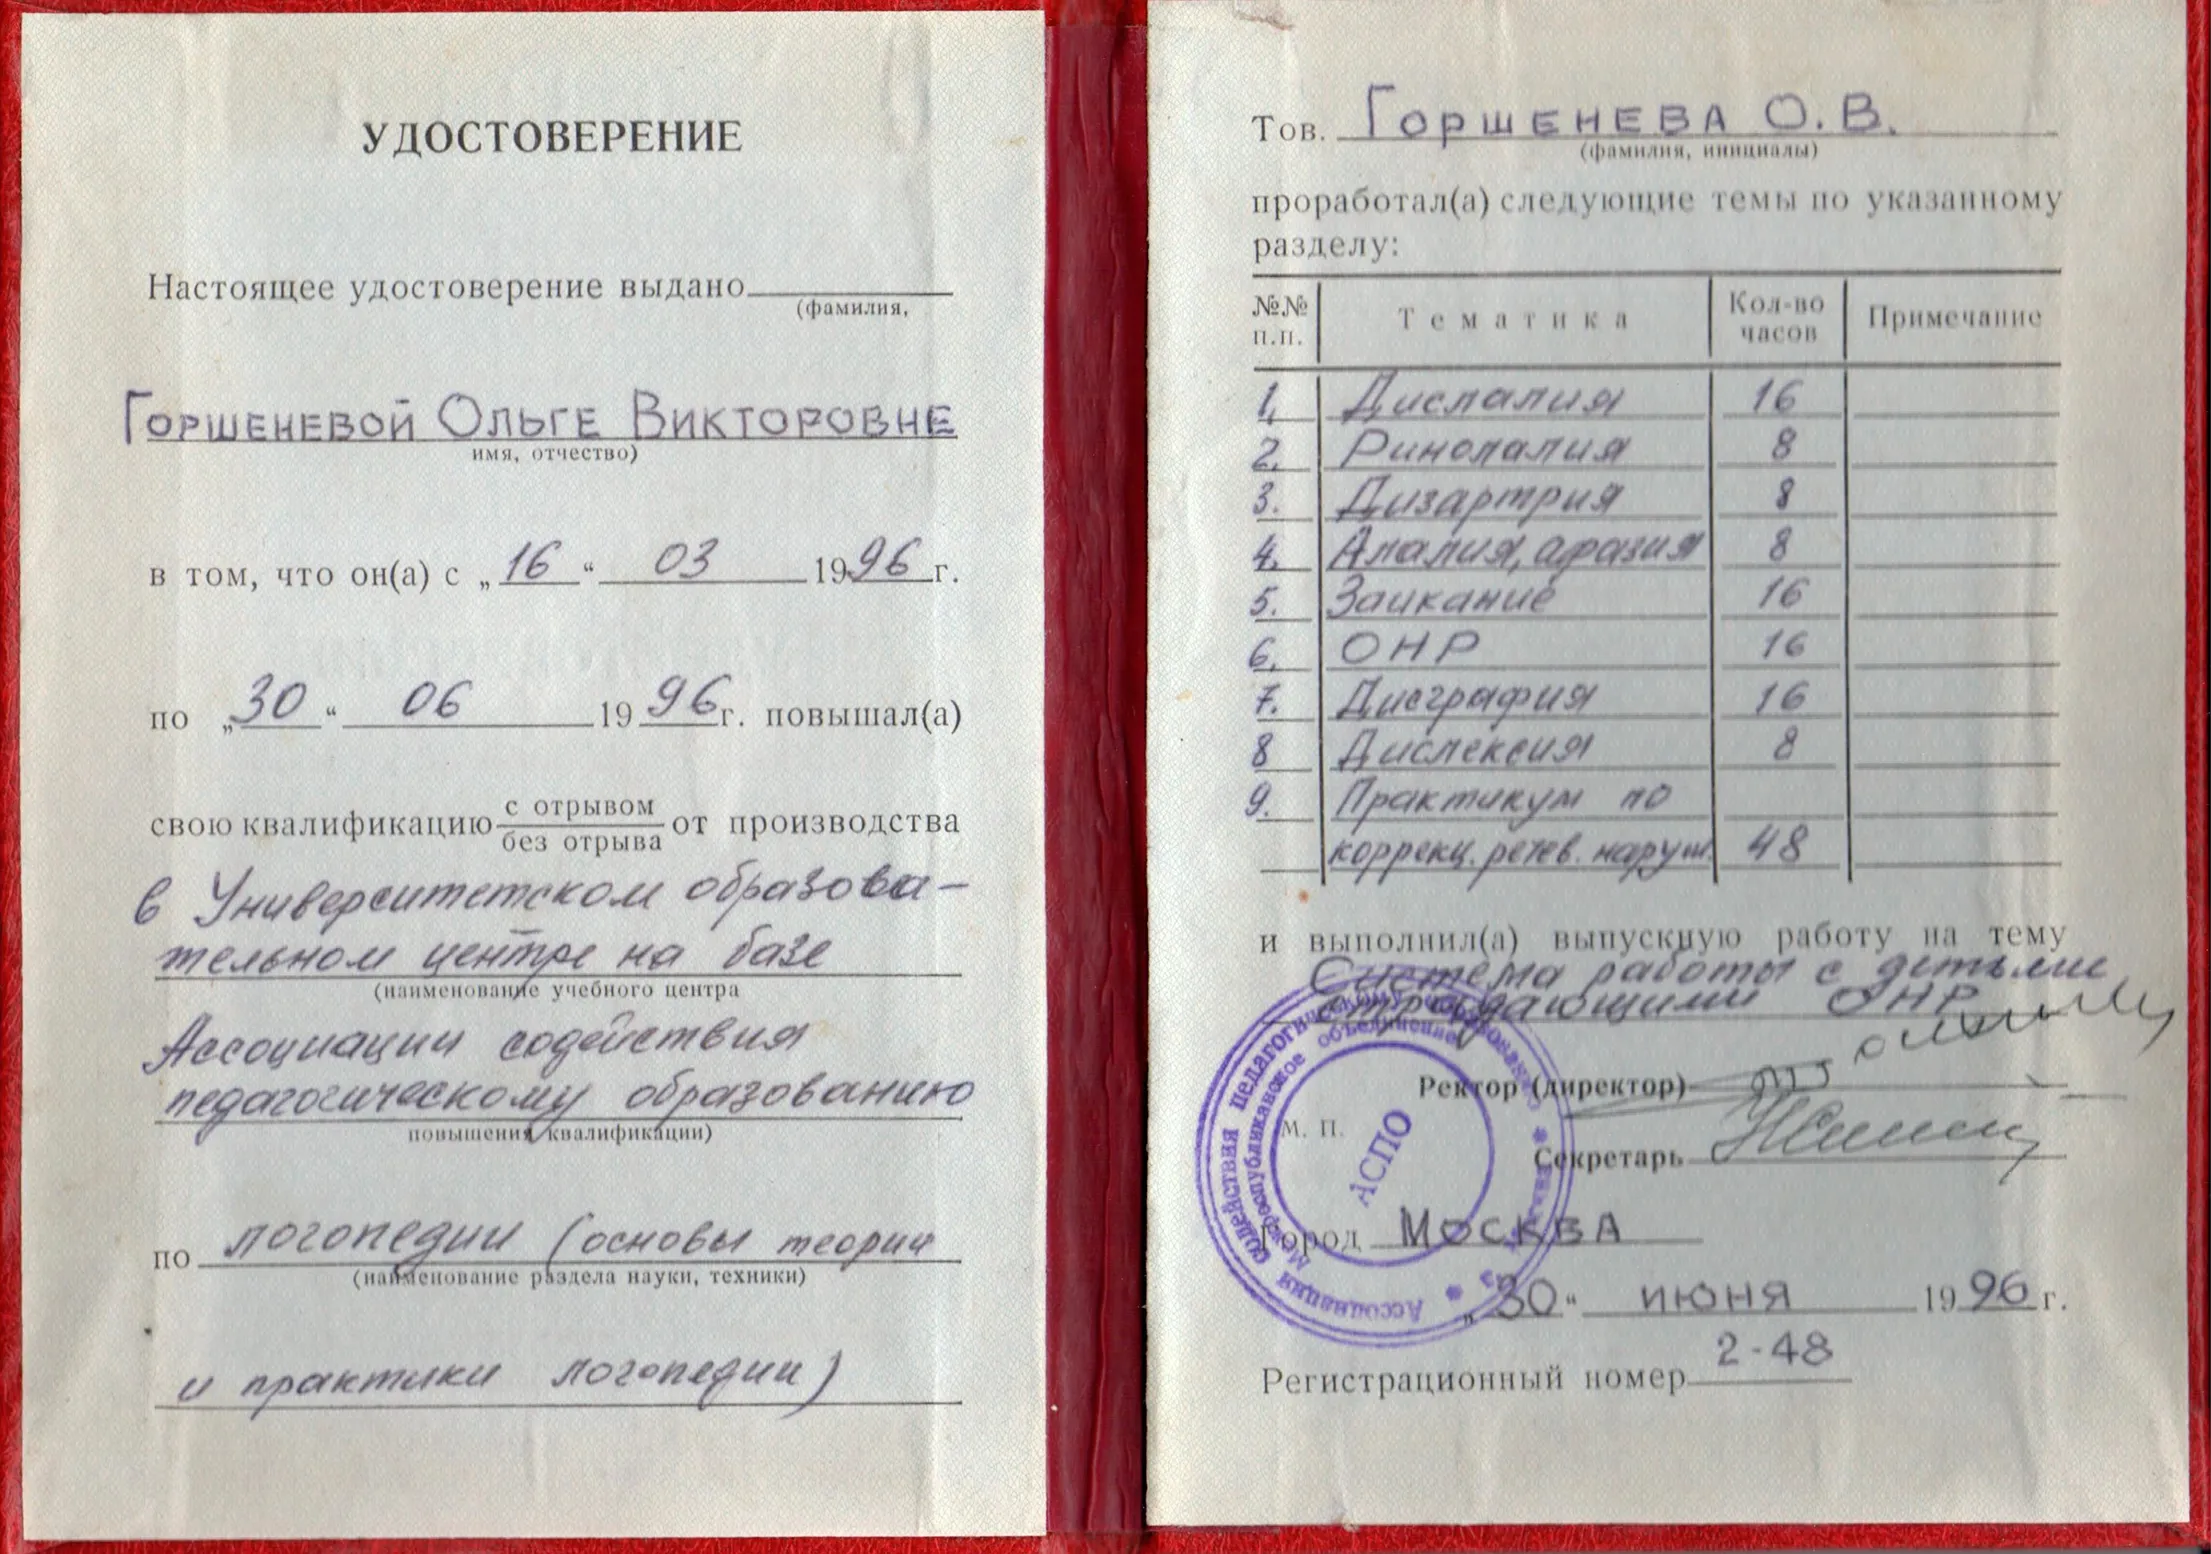 УДОСТОВЕРЕНИЕ
Настоящее удостоверение выдано
(фамилия,
Горшеневой Ольге Викторовне
имя, отчество)
в том, что он(а) с „16“ 03 1996 г.
по „30“ 06 1996 г. повышал(а)
свою квалификацию с отрывом от производства
без отрыва
в Университетском образова-
тельном центре на базе
(наименование учебного центра
Ассоциации содействия
педагогическому образованию
повышения квалификации)
по логопедии (основы теории
(наименование раздела науки, техники)
и практики логопедии)
Тов. Горшенева О.В.
(фамилия, инициалы)
проработал(а) следующие темы по указанному
разделу:
№№ п.п. Тематика Кол-во часов Примечание
1. Дислалия 16
2. Ринолалия 8
3. Дизартрия 8
4. Алалия, афазия 8
5. Заикание 16
6. ОНР 16
7. Дисграфия 16
8 Дислексия 8
9. Практикум по
коррекц. речев. наруш. 48
и выполнил(а) выпускную работу на тему
Система работы с детьми
страдающими ОНР
Ректор (директор)
М. П.
Секретарь
Город Москва
„30“ июня 1996 г.
Регистрационный номер 2-48
Ассоциация содействия педагогическому образованию
Межреспубликанское объединение
АСПО